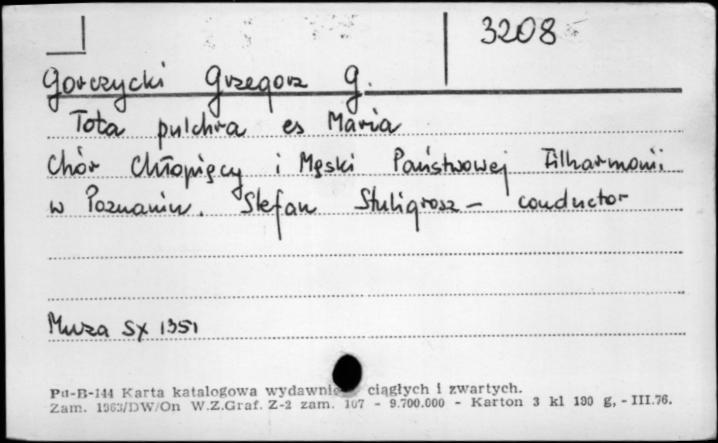 3208
Gorczycki Grzegorz G.
Tota pulchra es Maria
Chór Chłopięcy i Męski Państwowej Filharmonii
w Poznaniu. Stefan Stuligrosz – conductor
Muza SX 1351
Pu-B-144 Karta katalogowa wydawnic ciągłych i zwartych.
Zam. 1963/DW/On W.Z.Graf. Z-2 zam. 107 - 9.700.000 - Karton 3 kl 190 g, - III.76.